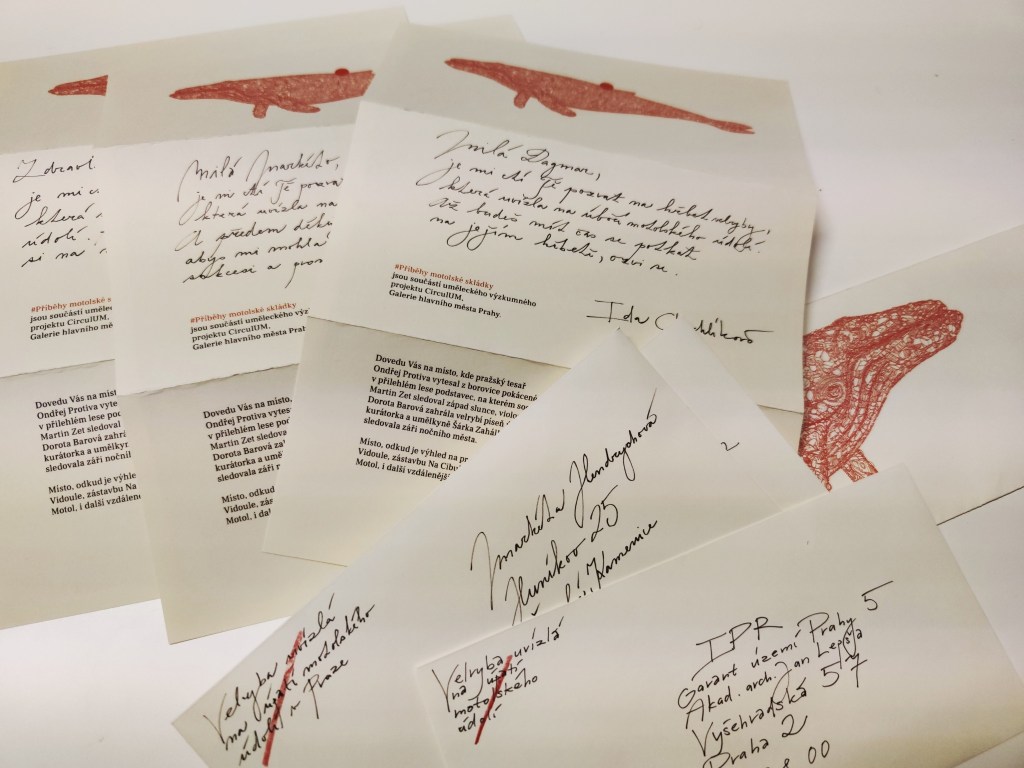 Zdraví
je mi
která
údolí.
si na
#Příběhy motolské skládky
jsou součástí uměleckého vý
projektu CirculUM,
Galerie hlavního mě
Dovedu Vás na místo,
Ondřej Protiva vytes
v přilehlém lese pod
Martin Zet sledoval
Dorota Barová zahrá
kurátorka a umělkyn
sledovala září noční
Místo, odkud je výhle
Vidoule, zástavbu
Motol, i další vzdále
Milá Markéto,
je mi ctí Tě pozva
která uvízla na
A předem děku
abys mi mohla
sukcesi a
#Příběhy motolské skládky
jsou součástí uměleckého vý
projektu CirculUM,
Galerie hlavního města Prah
Dovedu Vás na místo,
Ondřej Protiva vytes
v přilehlém lese
Martin Zet sledoval
Dorota Barová
kurátorka a
sledovala září
Místo, odkud
Vidoule, zás
Motol, i dal
Milá Dagmar,
je mi ctí Tě pozvat na hřbet velryby,
která uvízla na úbočí motolského údolí.
Až budeš mít čas se potkat
na jejím hřbetě, ozvi se.
Ida
#Příběhy motolské skládky
jsou součástí uměleckého výzkumného
projektu CirculUM,
Galerie hlavního města Prahy.
Dovedu Vás na místo, kde pražský tesař
Ondřej Protiva vytesal z borovice pokácené
v přilehlém lese podstavec, na kterém so
Martin Zet sledoval západ slunce, violo
Dorota Barová zahrála velrybí píseň
kurátorka a umělkyně Šárka Zahál
sledovala září nočního města.
Místo, odkud je výhled na pr
Vidoule, zástavbu Na Cibu
Motol, i další vzdálenějš
2
Markéta Hendrychová
Huníkov 25
Kamenice
Velryba uvízlá
na úpatí motolského
údolí v Praze
Velryba uvízlá
na úpatí
motolského
údolí
IPR
Garant území Prahy 5
Akad. arch. Jan Lepša
Vyšehradská 57
Praha 2
00